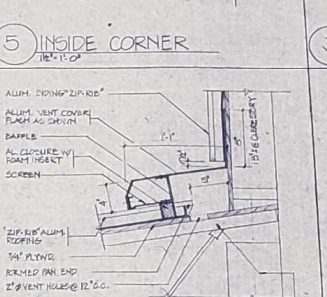 5 INSIDE CORNER
1½"=1'-0"
ALUM. SIDING "ZIP-RIB"
ALUM. VENT COVER
FLASH AS SHOWN
BAFFLE
AL. CLOSURE W/
FOAM INSERT
SCREEN
1'-1"
8"
4"
4"
"ZIP-RIB" ALUM.
ROOFING
3/4" PLYWD.
FORMED PAN END
2"Ø VENT HOLES @ 12" O.C.